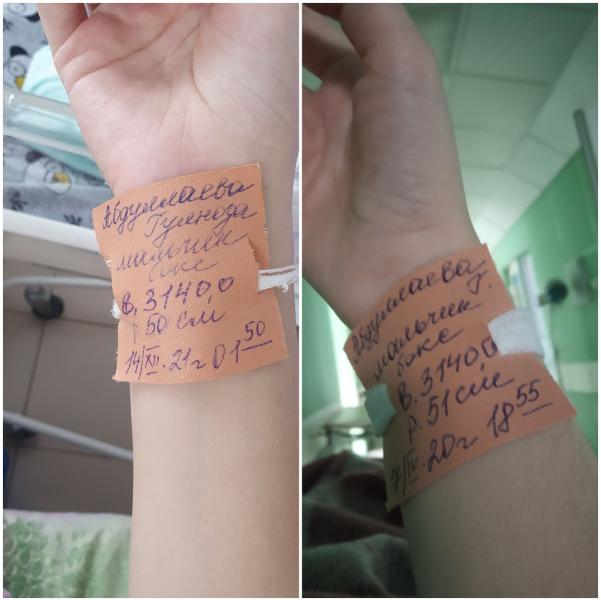 Абдуллаева
Гулноза
мальчик
бокс
в. 3140,0
р 50 см
14/XII.21г 01 50
Абдуллаева Г.
мальчик
бокс
в. 3140,0
р. 51 см
7/IV.20г 18 55